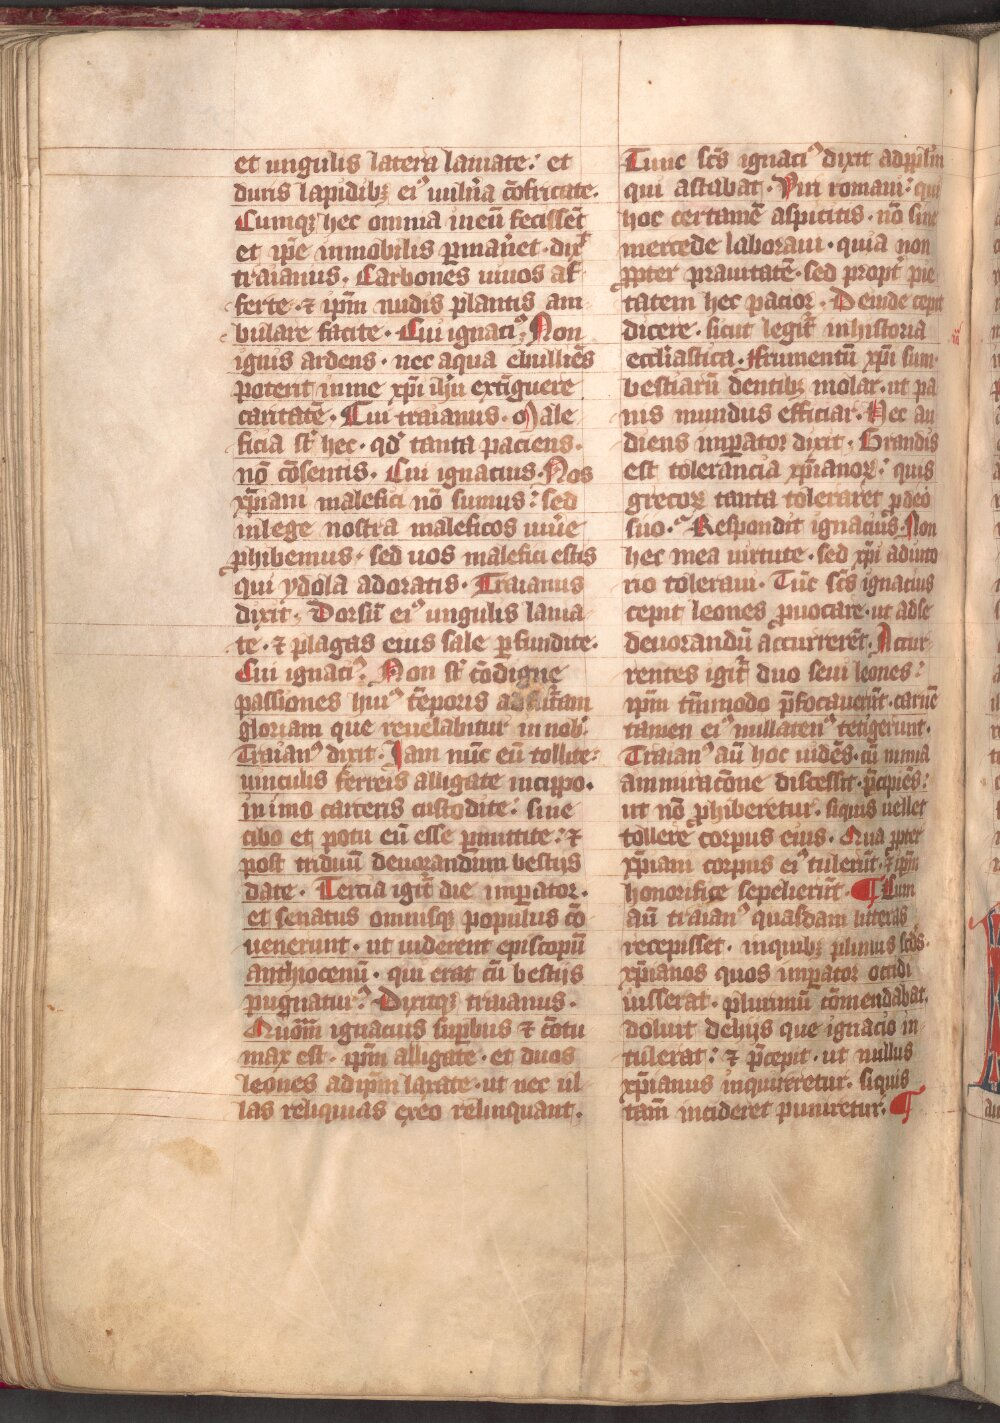 et ungulis latera laniate: et
duris lapidibꝫ eiꝰ uuln̄a cōfricate.
Cumqꝫ hec omnia ineū fecissēt
et ip̄e inmobilis ꝑmanēet. dix̄
traianus. Carbones uiuos af
ferte. ⁊ ip̄m nudis plantis am
bulare facite. Cui ignatiꝰ. Non
ignis ardens. nec aqua ebulliēs
poterit inme xp̄i ih̄u extīguere
caritatē. Cui traianus. Male
ficia st̄ hec. qd̄ tanta paciens.
nō cōsentis. Cui ignacius. Nos
xp̄iani malefici nō sumus: sed
inlege nostra maleficos uiuē
ꝓhibemus. sed uos malefici estis
qui ydola adoratis. Traianus
dixit. Dorsū eiꝰ ungulis lania
te. ⁊ plagas eius sale ꝑfundite.
Cui ignatiꝰ. Non st̄ cōdigne
passiones huiꝰ tēporis ad futām
gloriam que reuelabitur in nob̄.
Traianꝰ dixit. Iam nūc eū tollite:
uinculis ferreis alligate incippo.
in imo carceris custodite: sine
cibo et potu eū esse ꝑmittite: ⁊
post triduū deuorandum bestijs
date. Tercia igit̄ die imꝑator.
et senatus omnisqꝫ populus cō
uenerunt. ut uiderent episcopū
anthiocenū. qui erat cū bestijs
pugnaturꝰ. Dixitqꝫ traianus.
Quōm ignacius suꝑbus ⁊ cōtu
max est. ip̄m alligate. et duos
leones adip̄m laxate. ut nec ul
las reliquias exeo relinquant.
Tunc sc̄s ignatiꝰ dixit adpp̄l̄m
qui astabat. Viri romani: qui
hoc certamē aspicitis. nō sine
mercede laboraui. quia non
ꝓpter prauitatē. sed propt̄ pie
tatem hec pacior. Deinde cepit
dicere. sicut legit̄ inhistoria
eccl̄iastica. Frumentū xp̄i sum.
bestiarū dentibꝫ molar. ut pa
nis mundus efficiar. Hec au
diens imꝑator dixit. Grandis
est tolerancia xp̄ianoꝝ: quis
grecoꝝ tanta toleraret ꝓ deo
suo. Respondit ignacius. Non
hec mea uirtute. sed xp̄i adiuto
rio toleraui. Tūc sc̄s ignatius
cepit leones ꝓuocare. ut adse
deuorandū accurrerēt. Accur
rentes igit̄ duo seui leones:
ip̄m tm̄modo p̄focauerūt. carnē
tamen eiꝰ nullatenꝰ tetigerunt.
Traianꝰ aū hoc uidēs. cū nimia
ammiracōne discessit. p̄cipiēs:
ut nō ꝓhiberetur. siquis uellet
tollere corpus eius. Qua ꝓpter
xp̄iani corpus eiꝰ tulerūt. ⁊ ip̄m
honorifice sepelierūt. ¶ Cum
aū traianꝰ quasdam litteras
recepisset. inquibꝫ plinius scd̄s.
xp̄ianos quos imꝑator occidi
iusserat. plurimū cōmendabat.
doluit dehijs que ignacio in
tulerat: ⁊ p̄cepit. ut nullus
xp̄ianus inquireretur. siquis
tam̄ incideret puniretur. ¶